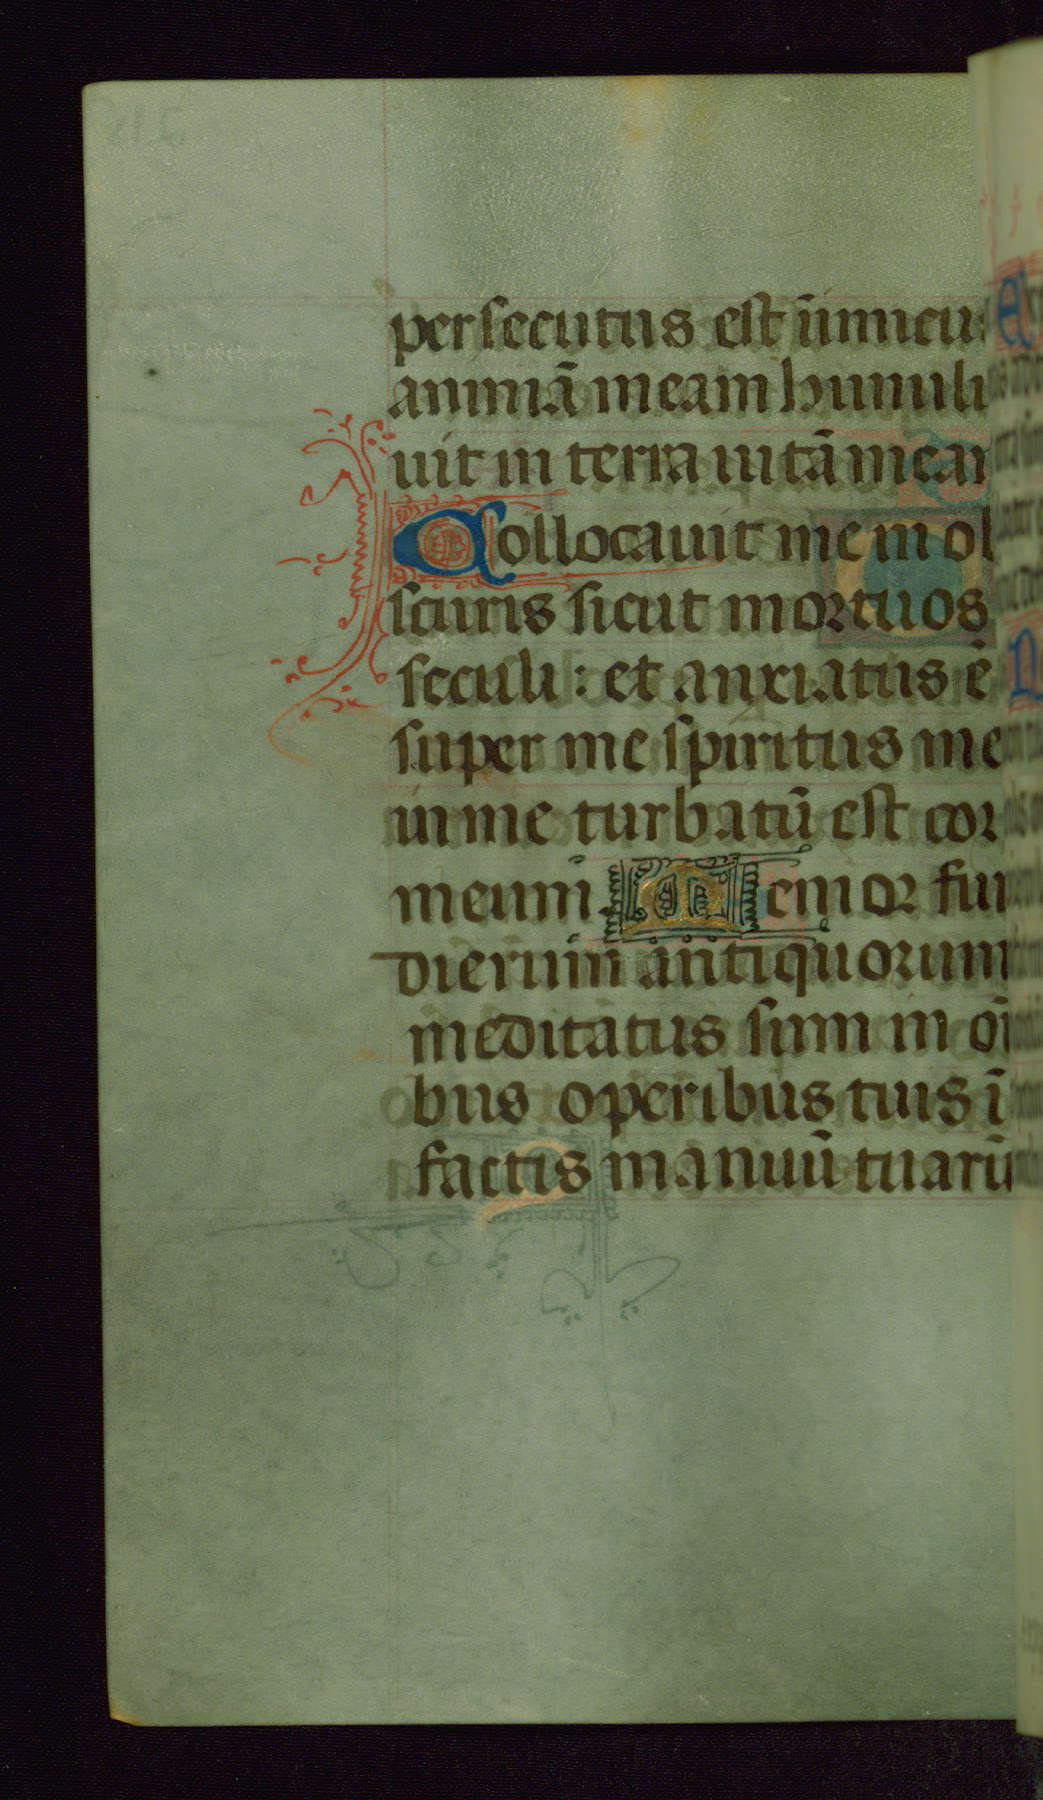 persecutus est inimicus
animā meam humili
uit in terra uitā meam
Collocauit me in ob
scuris sicut mortuos
seculi: et anxiatus ē
super me spiritus me
in me turbatū est cor
meum. Memor fui
dierum antiquorum
meditatus sum in oī
bus operibus tuis ī
factis manuū tuarū